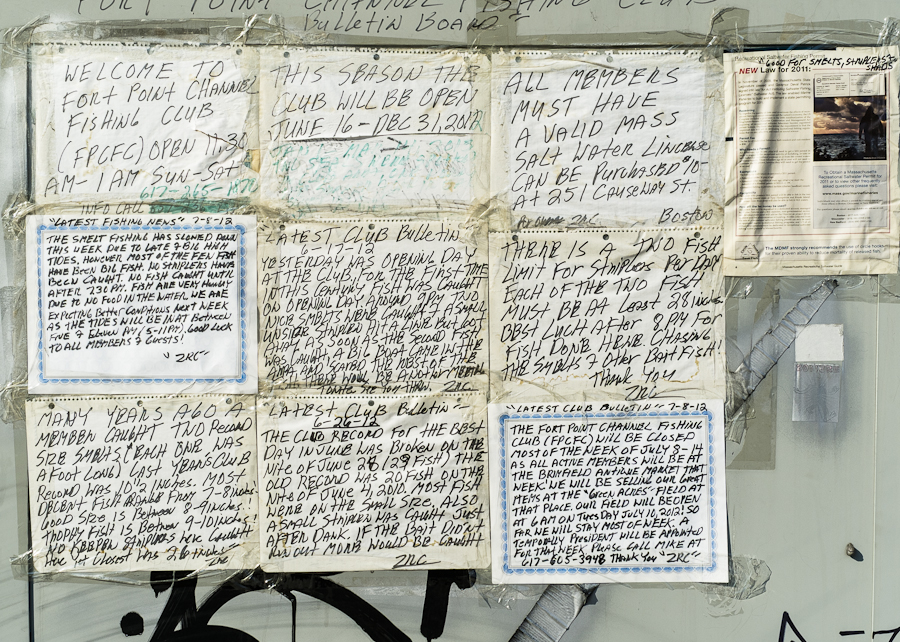 FORT POINT CHANNEL FISHING CLUB
Bulletin Board
WELCOME TO
FORT POINT CHANNEL
FISHING CLUB
(FPCFC) OPEN 11:30
AM-1AM SUN-SAT
617-265-
INFO CALL
THIS SEASON THE
CLUB WILL BE OPEN
JUNE 16-DEC 31, 2012
ALL MEMBERS
MUST HAVE
A VALID MASS
SALT WATER LINCENSE
CAN BE PURCHASED
AT 251 CAUSEWAY ST.
ZRC BOSTON
GOOD FOR SMELTS, STRIPERS &
SHADS
NEW Law for 2011:
To Obtain a Massachusetts
Recreational Saltwater Permit for
2011 or to view other frequently
asked questions please visit:
The MDMF strongly recommends the use of circle hooks
"LATEST FISHING NEWS" 7-8-12
THE SMELT FISHING HAS SLOWED DOWN
THIS WEEK DUE TO LATE & BIG HIGH
TIDES, HOWEVER MOST OF THE FEW FISH
HAVE BEEN BIG FISH. NO STRIPERS HAVE
BEEN CAUGHT. NO FISH CAUGHT UNTIL
AFTER 7:30 PM. FISH ARE VERY HUNGRY
DUE TO NO FOOD IN THE WATER. WE ARE
EXPECTING BETTER CONDITIONS NEXT WEEK
AS THE TIDES WILL BE IN AT BETWEEN
FIVE & ELEVEN PM (5-11PM). GOOD LUCK
TO ALL MEMBERS & GUESTS!
"ZRC"
LATEST CLUB BULLETIN
6-17-12
YESTERDAY WAS OPENING DAY
AT THE CLUB. FOR THE FIRST TIME
IN THIS CENTURY FISH WAS CAUGHT
ON OPENING DAY. AROUND 9PM TWO
NICE SMELTS WERE CAUGHT & A SMALL
UNSIZE STRIPER HIT A LINE BUT GOT
AWAY. AS SOON AS THE SECOND FISH
WAS CAUGHT, A BIG BOAT CAME IN THE
AREA AND SCARED THE REST OF THE
ZRC
THERE IS A TWO FISH
LIMIT FOR STRIPERS PER DAY
EACH OF THE TWO FISH
MUST BE AT LEAST 28 INCHES
BEST LUCK AFTER 8PM FOR
FISH DONE HERE CHASING
THE SMELTS & OTHER BAIT FISH!
THANK YOU
ZRC
MANY YEARS AGO A
MEMBER CAUGHT TWO RECORD
SIZE SMELTS (EACH ONE WAS
A FOOT LONG) LAST YEARS CLUB
RECORD WAS 10 1/2 INCHES. MOST
DECENT FISH RANGE FROM 7-8 INCHES
GOOD SIZE IS BETWEEN 8-9 INCHES!
TROPHY FISH IS BETWEEN 9-10 INCHES!
NO KEEPER STRIPERS WERE CAUGHT
YET CLOSEST WAS 26 INCHES
ZRC
LATEST CLUB BULLETIN
6-26-12
THE CLUB RECORD FOR THE BEST
DAY IN JUNE WAS BROKEN ON THE
NITE OF JUNE 26 (29 FISH) THE
OLD RECORD WAS 20 FISH ON THE
NITE OF JUNE 4, 2010. MOST FISH
WERE ON THE SMALL SIZE. ALSO
A SMALL STRIPER WAS CAUGHT JUST
AFTER DARK. IF THE BAIT DIDN'T
RUN OUT MORE WOULD BE CAUGHT
ZRC
"LATEST CLUB BULLETIN" 7-8-12
THE FORT POINT CHANNEL FISHING
CLUB (FPCFC) WILL BE CLOSED
MOST OF THE WEEK OF JULY 8-14
AS ALL ACTIVE MEMBERS WILL BE AT
THE BRIMFIELD ANTIQUE MARKET THAT
WEEK. WE WILL BE SELLING OUR GREAT
ITEMS AT THE "GREEN ACRES" FIELD AT
THAT PLACE. OUR FIELD WILL BE OPEN
AT 6AM ON TUESDAY JULY 10, 2012! SO
FAR WE WILL STAY MOST OF WEEK. A
TEMPORARY PRESIDENT WILL BE APPOINTED
FOR THAT WEEK. PLEASE CALL MIKE AT
617-605-3948 THANK YOU "ZRC"